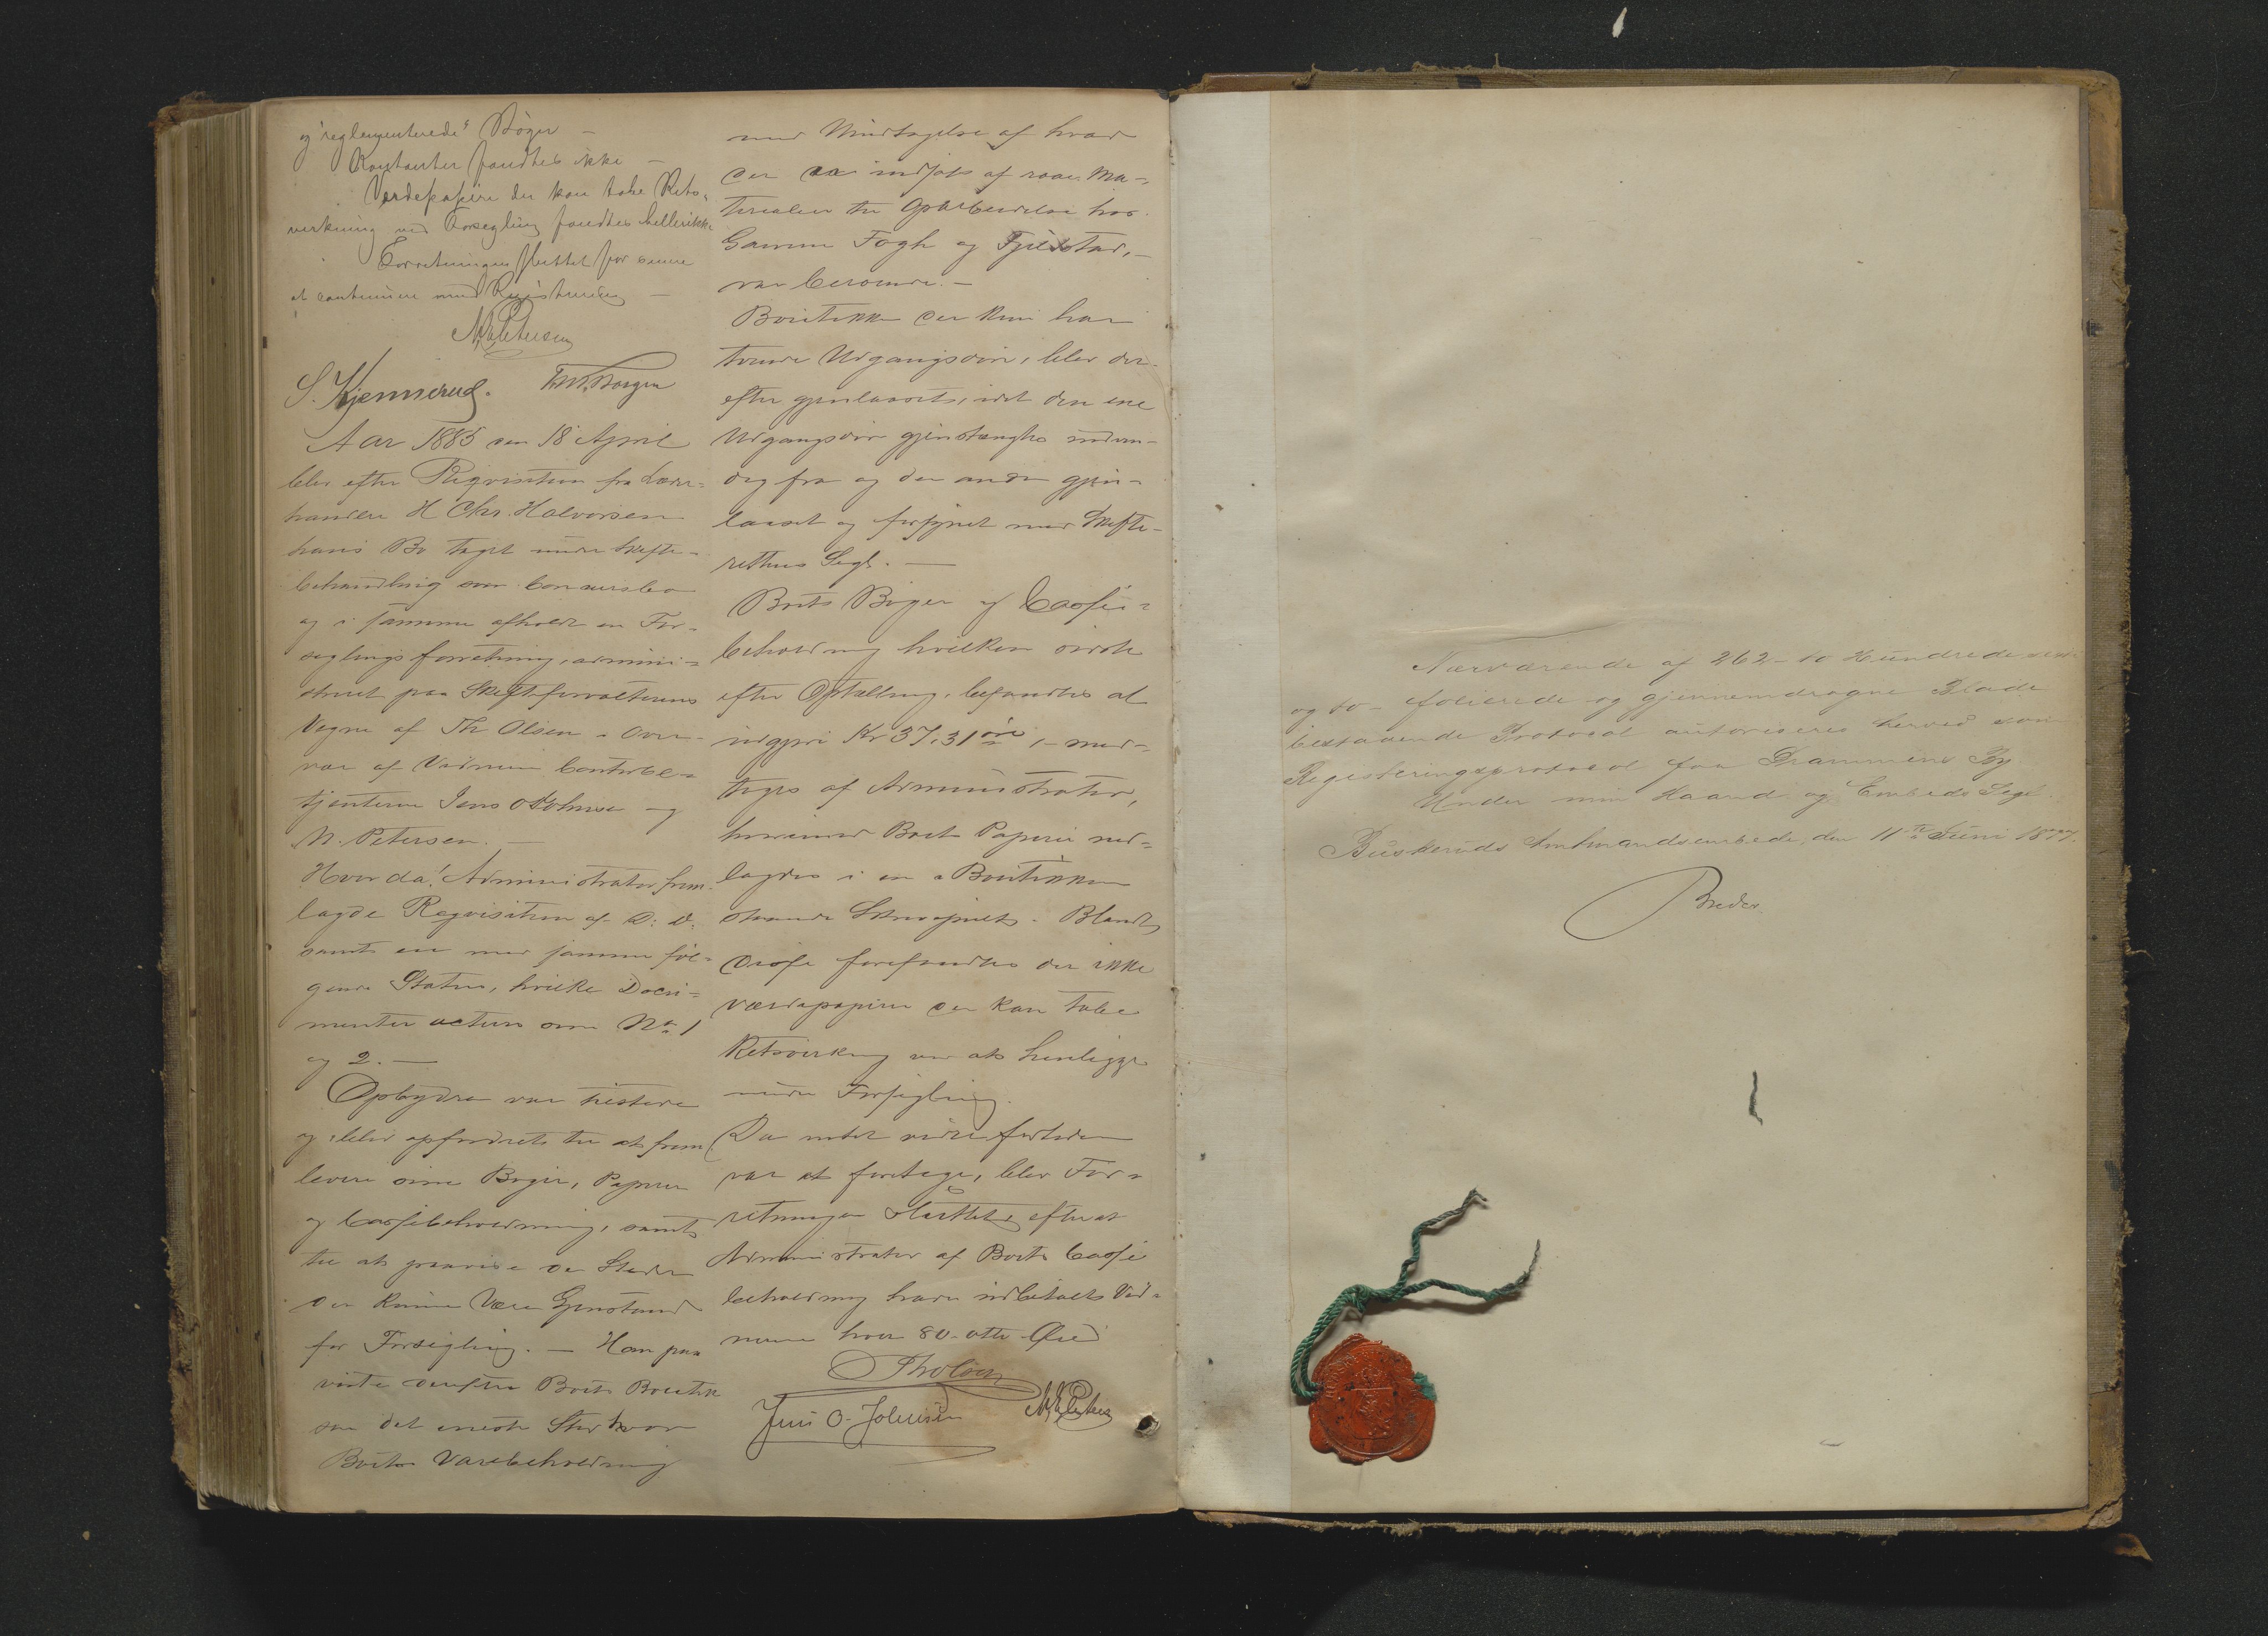 og "reglementerede" Bøger –
Contanter fandtes ikke –
Værdipapire der kan tabe Rets-
virkning ved Forsegling fandtes hellerikke
Forretningen sluttet for senere
at continuere med Registrering –
N. Petersen
S. Kjennerud. Borgen
Aar 1885 den 18 April
blev efter Reqvisition fra Læder-
handler H Chr. Halvorsen
hans Bo taget under Skifte-
behandling som Concursbo
og i samme afholdt en For-
seglingsforretning, admini-
streret paa Skifteforvalterens
Vegne af Th Olsen i Over-
vær af Vidnerne Contorbe-
tjenterne Jens O Johnsen og
N. Petersen. –
Hvor da! Administrator frem-
lagde Reqvisition af D: D:
samt en med samme føl-
gende Status, hvilke Docu-
menter acteres som No 1
og 2. –
Opbyderen var tilstede
og blev opfordret til at frem-
levere sine Bøger, Papirer
og Cassebeholdning, samt
til at paavise de Steder
der kunne være Gjenstand
for Forsegling. – Han paa-
viste derefter Boets Boutik
som det eneste Sted hvor
Boets Varebeholdning
med Undtagelse af hvad
der var indsat af raae Ma-
terialier til Oparbeidelse hos
Garverne Fogh og Fjeldstad, –
var beroende. –
Boutikken der kun har
tvende Udgangsdøre, blev der-
efter gjenlaaset, idet den ene
Udgangsdør gjenstængtes indven-
dig fra og den anden gjen-
laaset og forsynet med Skifte-
rettens Segl. –
Boets Bøger og Casse-
beholdning hvilken sidste
efter Optælling, befandtes at
udgjøre Kr 37,31 øre, – med-
toges af Administrator,
hvorimod Boets Papirer ned-
lagdes i en i Boutikken
staaende Skrivepult. – Blandt
disse forefandtes der ikke
Værdipapirer der kan tabe
Retsvirkning ved at henligge
under Forsegling.
Da intet videre fortiden
var at foretage, blev For-
retningen sluttet, efterat
Administrator af Boets Casse-
beholdning havde udbetalt Vid-
nerne hver 80 – otti – Øre
Th Olsen
Jens O. Johnsen N. Petersen
Nærværende af 262 – to Hundrede
og to – folierede og gjennemdragne Blade
bestaaende Protocol autoriseres herved som
Registreringsprotocol for Drammens By
Under min Haand og Embeds Segl.
Buskeruds Amtmandsembede, den 11te Juni 1877.
Breder